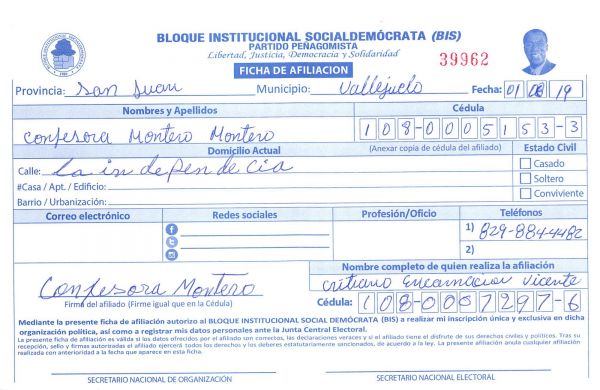 BLOQUE INSTITUCIONAL SOCIALDEMÓCRATA (BIS)
PARTIDO PEÑAGOMISTA
Libertad, Justicia, Democracia y Solidaridad
39962
FICHA DE AFILIACION
Provincia: San Juan Municipio: Vallejuelo Fecha: 01 08 19
Nombres y Apellidos Cédula
Confesora Montero Montero 108-0005153-3
Domicilio Actual (Anexar copia de cédula del afiliado) Estado Civil
Calle: La independecia Casado
#Casa / Apt. / Edificio: Soltero
Barrio / Urbanización: Conviviente
Correo electrónico Redes sociales Profesión/Oficio Teléfonos
1) 829-884-4482
2)
Nombre completo de quien realiza la afiliación
Confesora Montero critiano Encarnacion Vicente
Firma del afiliado (Firme igual que en la Cédula) Cédula: 108-0007297-6
Mediante la presente ficha de afiliación autorizo al BLOQUE INSTITUCIONAL SOCIAL DEMÓCRATA (BIS) a realizar mi inscripción única y exclusiva en dicha
organización política, así como a registrar mis datos personales ante la Junta Central Electoral.
La presente ficha de afiliación es válida si los datos ofrecidos por el afiliado son correctos, las declaraciones veraces y si el afiliado tiene el disfrute de sus derechos civiles y políticos. Tras su
recepción, sello y firmas autorizadas el afiliado ejercerá todos los derechos y los deberes estatutariamente sancionados, de acuerdo a la ley. La presente afiliación anula cualquier afiliación
realizada con anterioridad a la fecha que aparece en esta ficha.
SECRETARIO NACIONAL DE ORGANIZACIÓN SECRETARIO NACIONAL ELECTORAL